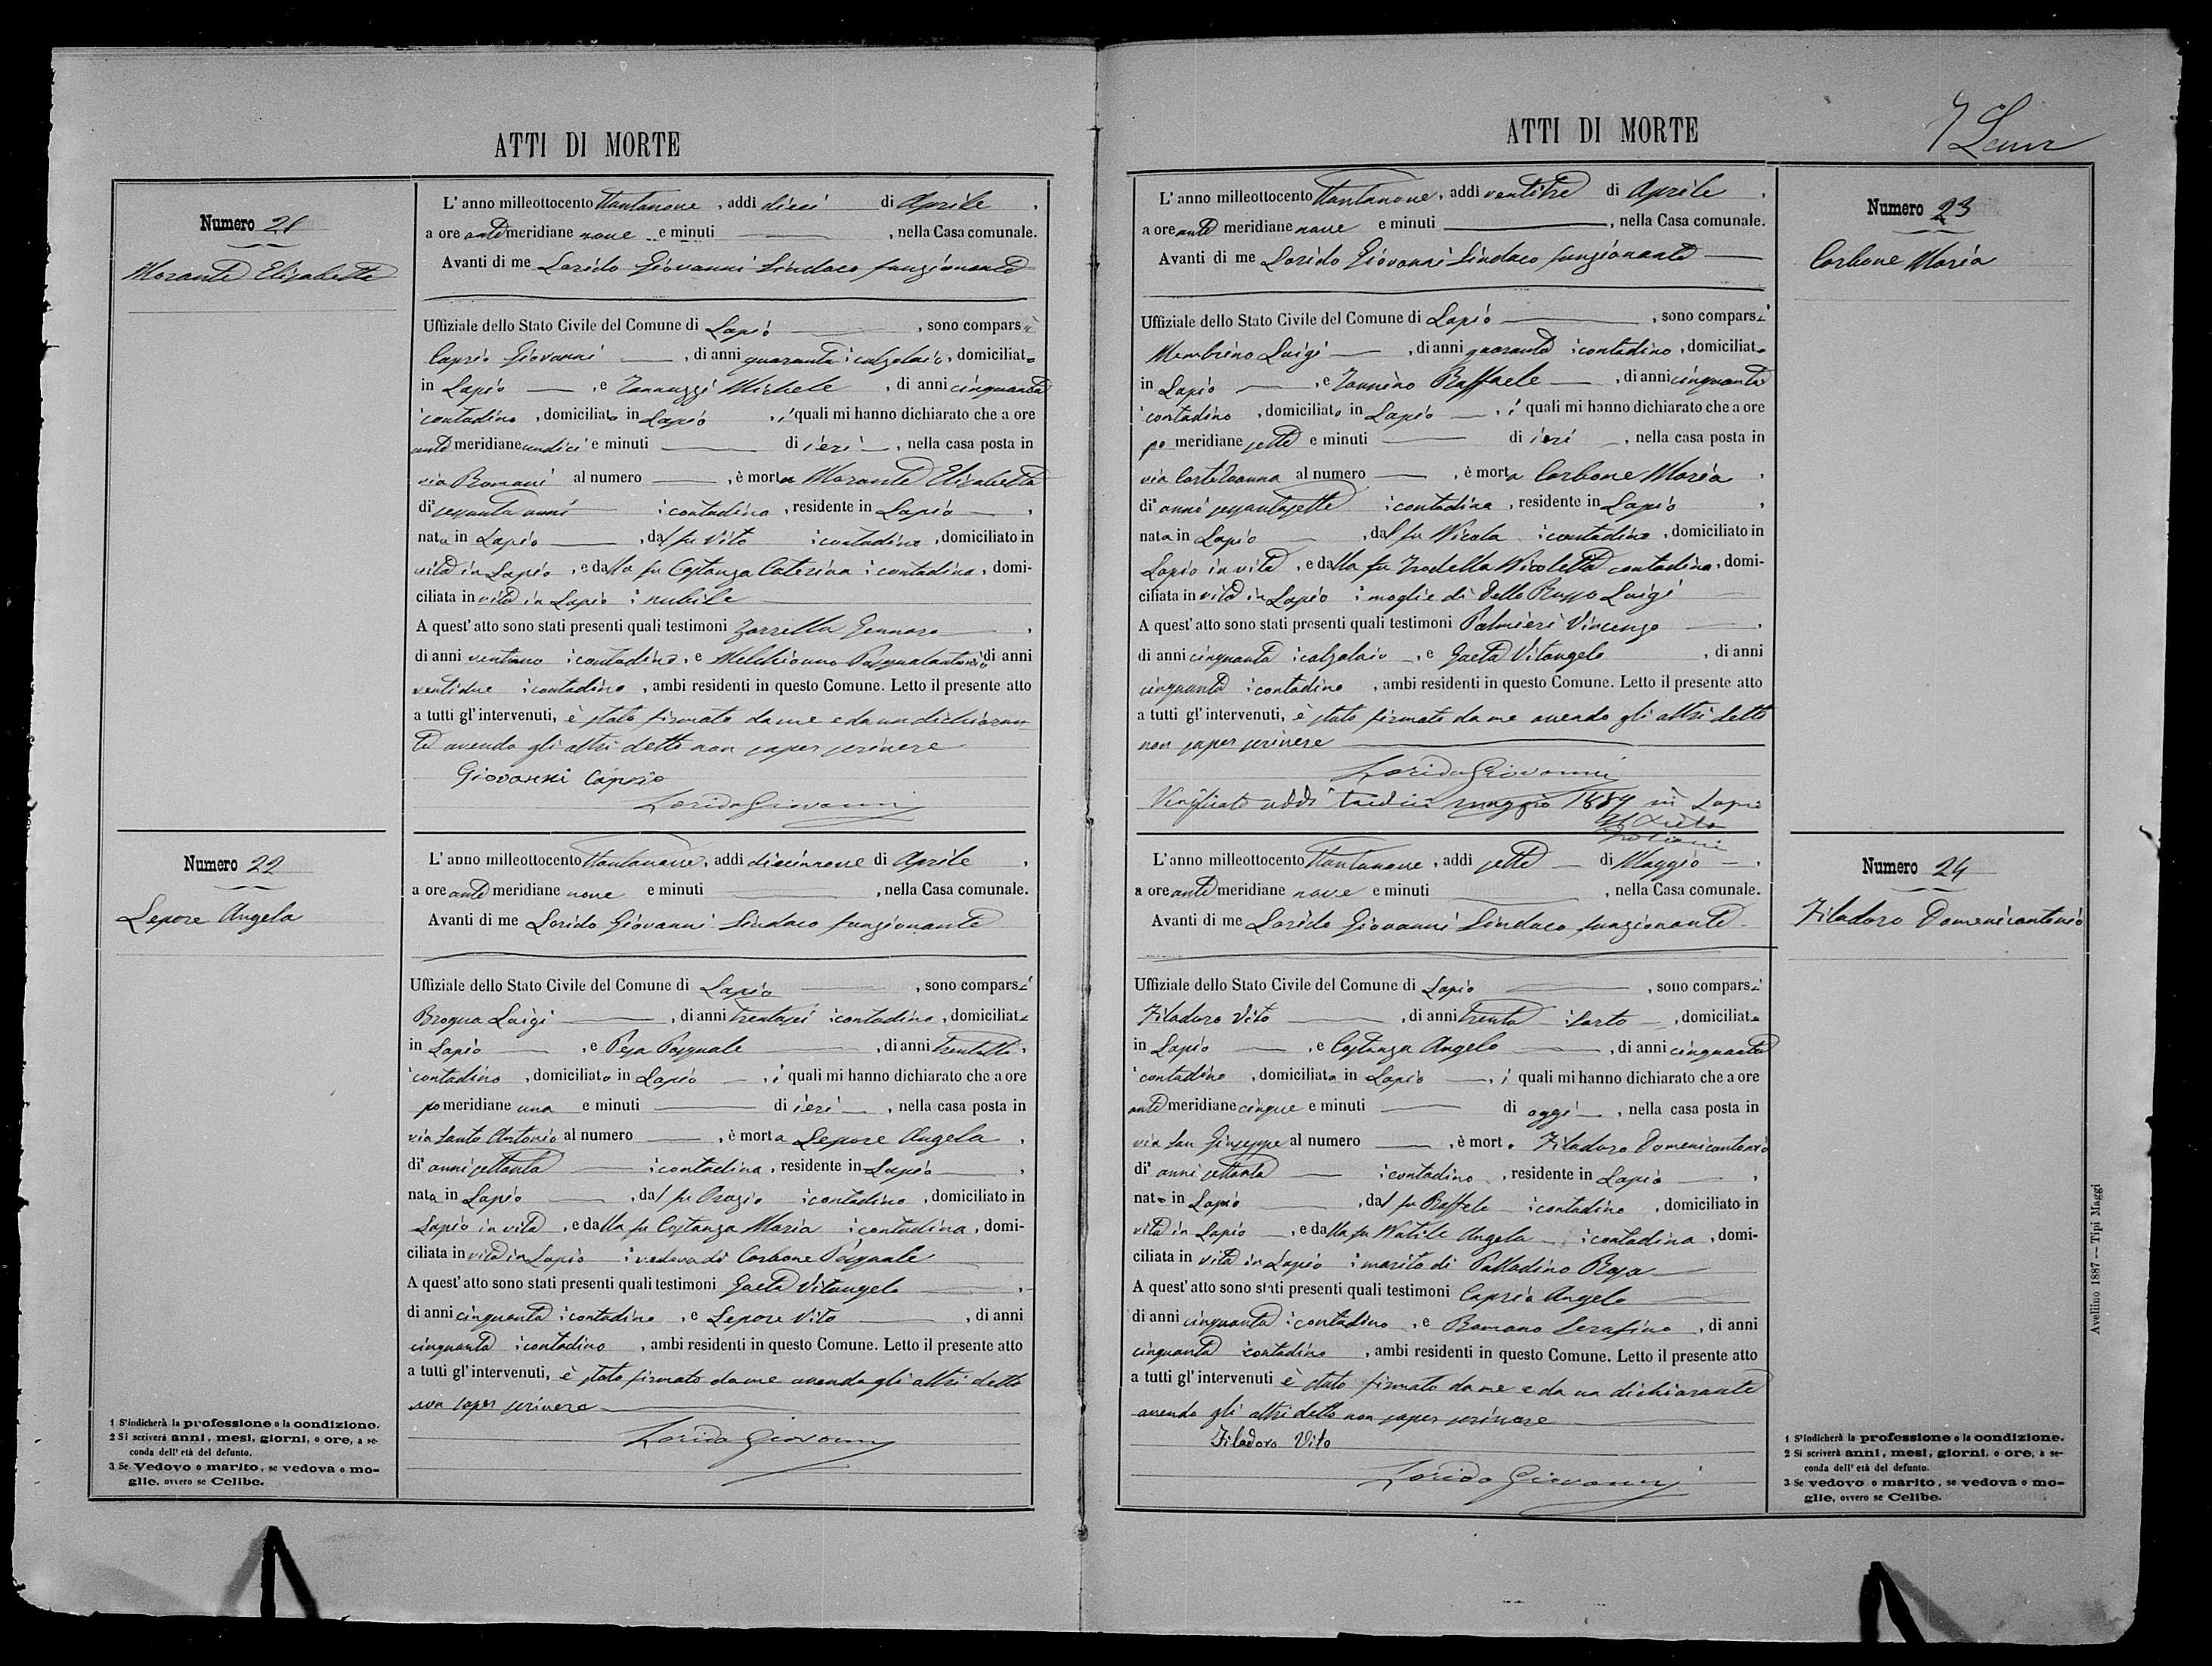 ATTI DI MORTE
Numero 21
Morante Elisabetta
L' anno milleottocento ttantanove, addì dieci di Aprile,
a ore ante meridiane nove e minuti, nella Casa comunale.
Avanti di me Lorido Giovanni Sindaco funzionante
Uffiziale dello Stato Civile del Comune di Lapio, sono comparsi
Caprio Giovanni, di anni quaranta calzolaio, domiciliato
in Lapio, e Iannuzzi Michele, di anni cinquanta
contadino, domiciliato in Lapio, i quali mi hanno dichiarato che a ore
ante meridiane undici e minuti di ieri, nella casa posta in
via Romani al numero, è morta Morante Elisabetta
di sessanta anni contadina, residente in Lapio,
nata in Lapio, dal fu Vito contadino, domiciliato in
vita in Lapio, e dalla fu Costanza Caterina contadina, domi-
ciliata in vita in Lapio nubile
A quest' atto sono stati presenti quali testimoni Zarrella Gennaro,
di anni ventuno contadino, e Melchionno Pasqualantonio di anni
ventidue contadino, ambi residenti in questo Comune. Letto il presente atto
a tutti gl' intervenuti, è stato firmato da me e da un dichiaran-
te avendo gli altri detto non saper scrivere
Giovanni Caprio
Lorido Giovanni
Numero 22
Lepore Angela
L' anno milleottocento ttantanove, addì diecinnove di Aprile,
a ore ante meridiane nove e minuti, nella Casa comunale.
Avanti di me Lorido Giovanni Sindaco funzionante
Uffiziale dello Stato Civile del Comune di Lapio, sono comparsi
Brogna Luigi, di anni trentasei contadino, domiciliato
in Lapio, e Pisa Pasquale, di anni
contadino, domiciliato in Lapio, i quali mi hanno dichiarato che a ore
po meridiane una e minuti di ieri, nella casa posta in
via Santo Antonio al numero, è morta Lepore Angela,
di anni settanta contadina, residente in Lapio,
nata in Lapio, dal fu Orazio contadino, domiciliato in
Lapio in vita, e dalla fu Costanza Maria contadina, domi-
ciliata in vita in Lapio vedova di Carbone Pasquale
A quest' atto sono stati presenti quali testimoni Gaeta Vitangelo,
di anni cinquanta contadino, e Lepore Vito, di anni
cinquanta contadino, ambi residenti in questo Comune. Letto il presente atto
a tutti gl' intervenuti, è stato firmato da me avendo gli altri detto
non saper scrivere
Lorido Giovanni
1 S'indicherà la professione o la condizione.
2 Si scriverà anni, mesi, giorni, o ore, a se-
conda dell' età del defunto.
3 Se Vedovo o marito, se vedova o mo-
glie, ovvero se Celibe.
ATTI DI MORTE
7
L' anno milleottocento ttantanove, addì ventitre di Aprile,
a ore ante meridiane nove e minuti, nella Casa comunale.
Avanti di me Lorido Giovanni Sindaco funzionante
Uffiziale dello Stato Civile del Comune di Lapio, sono comparsi
Membrino Luigi, di anni quaranta contadino, domiciliato
in Lapio, e Iannino Raffaele, di anni cinquanta
contadino, domiciliato in Lapio, i quali mi hanno dichiarato che a ore
po meridiane sette e minuti di ieri, nella casa posta in
via al numero, è morta Carbone Maria,
di anni sessantasette contadina, residente in Lapio,
nata in Lapio, dal fu Nicola contadino, domiciliato in
Lapio in vita, e dalla fu Trodella Nicoletta contadina, domi-
ciliata in vita in Lapio moglie di Dello Russo Luigi
A quest' atto sono stati presenti quali testimoni Palmieri Vincenzo,
di anni cinquanta calzolaio, e Gaeta Vitangelo, di anni
cinquanta contadino, ambi residenti in questo Comune. Letto il presente atto
a tutti gl' intervenuti, è stato firmato da me avendo gli altri detto
non saper scrivere
Lorido Giovanni
Verificato addì tredici maggio 1889 in Lapio
Numero 23
Carbone Maria
L' anno milleottocento ttantanove, addì sette di Maggio,
a ore ante meridiane nove e minuti, nella Casa comunale.
Avanti di me Lorido Giovanni Sindaco funzionante
Uffiziale dello Stato Civile del Comune di Lapio, sono comparsi
Filadoro Vito, di anni trenta Sarto, domiciliato
in Lapio, e Costanza Angelo, di anni cinquanta
contadino, domiciliato in Lapio, i quali mi hanno dichiarato che a ore
ante meridiane cinque e minuti di oggi, nella casa posta in
via San Giuseppe al numero, è morto Filadoro Domenicantonio
di anni settanta contadino, residente in Lapio,
nato in Lapio, dal fu Raffele contadino, domiciliato in
vita in Lapio, e dalla fu Natile Angela contadina, domi-
ciliata in vita in Lapio marito di Palladino Rosa
A quest' atto sono stati presenti quali testimoni Caprio Angelo
di anni cinquanta contadino, e Romano Serafino, di anni
cinquanta contadino, ambi residenti in questo Comune. Letto il presente atto
a tutti gl' intervenuti è stato firmato da me e da un dichiarante
avendo gli altri detto non saper scrivere
Filadoro Vito
Lorido Giovanni
Numero 24
Filadoro Domenicantonio
1 S'indicherà la professione o la condizione.
2 Si scriverà anni, mesi, giorni, o ore, a se-
conda dell' età del defunto.
3 Se vedovo o marito, se vedova o mo-
glie, ovvero se Celibe.
Avellino 1887 — Tipi Maggi